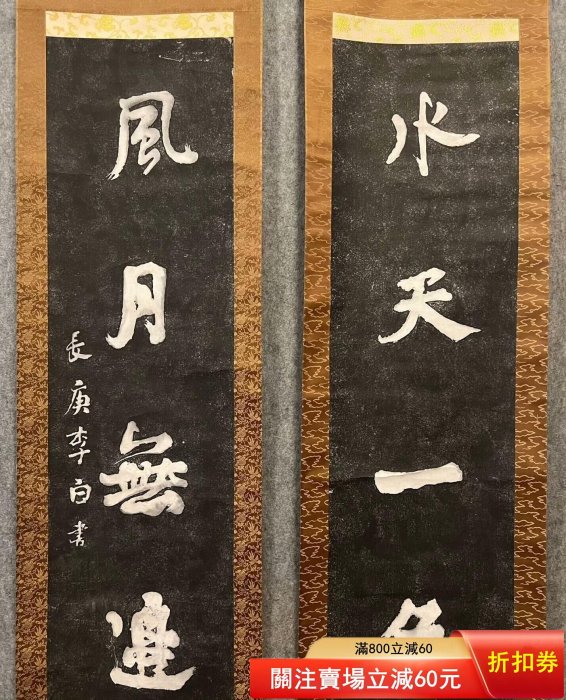 水天一色
風月無邊
長庚李白書
滿800立減60
關注賣場立減60元
折扣券